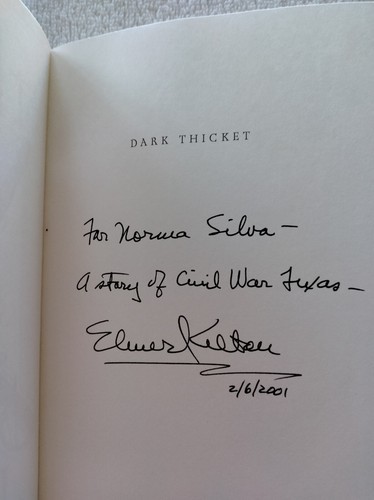 DARK THICKET
For Norma Silva —
A story of Civil War Texas —
Elmer Kelton
2/6/2001